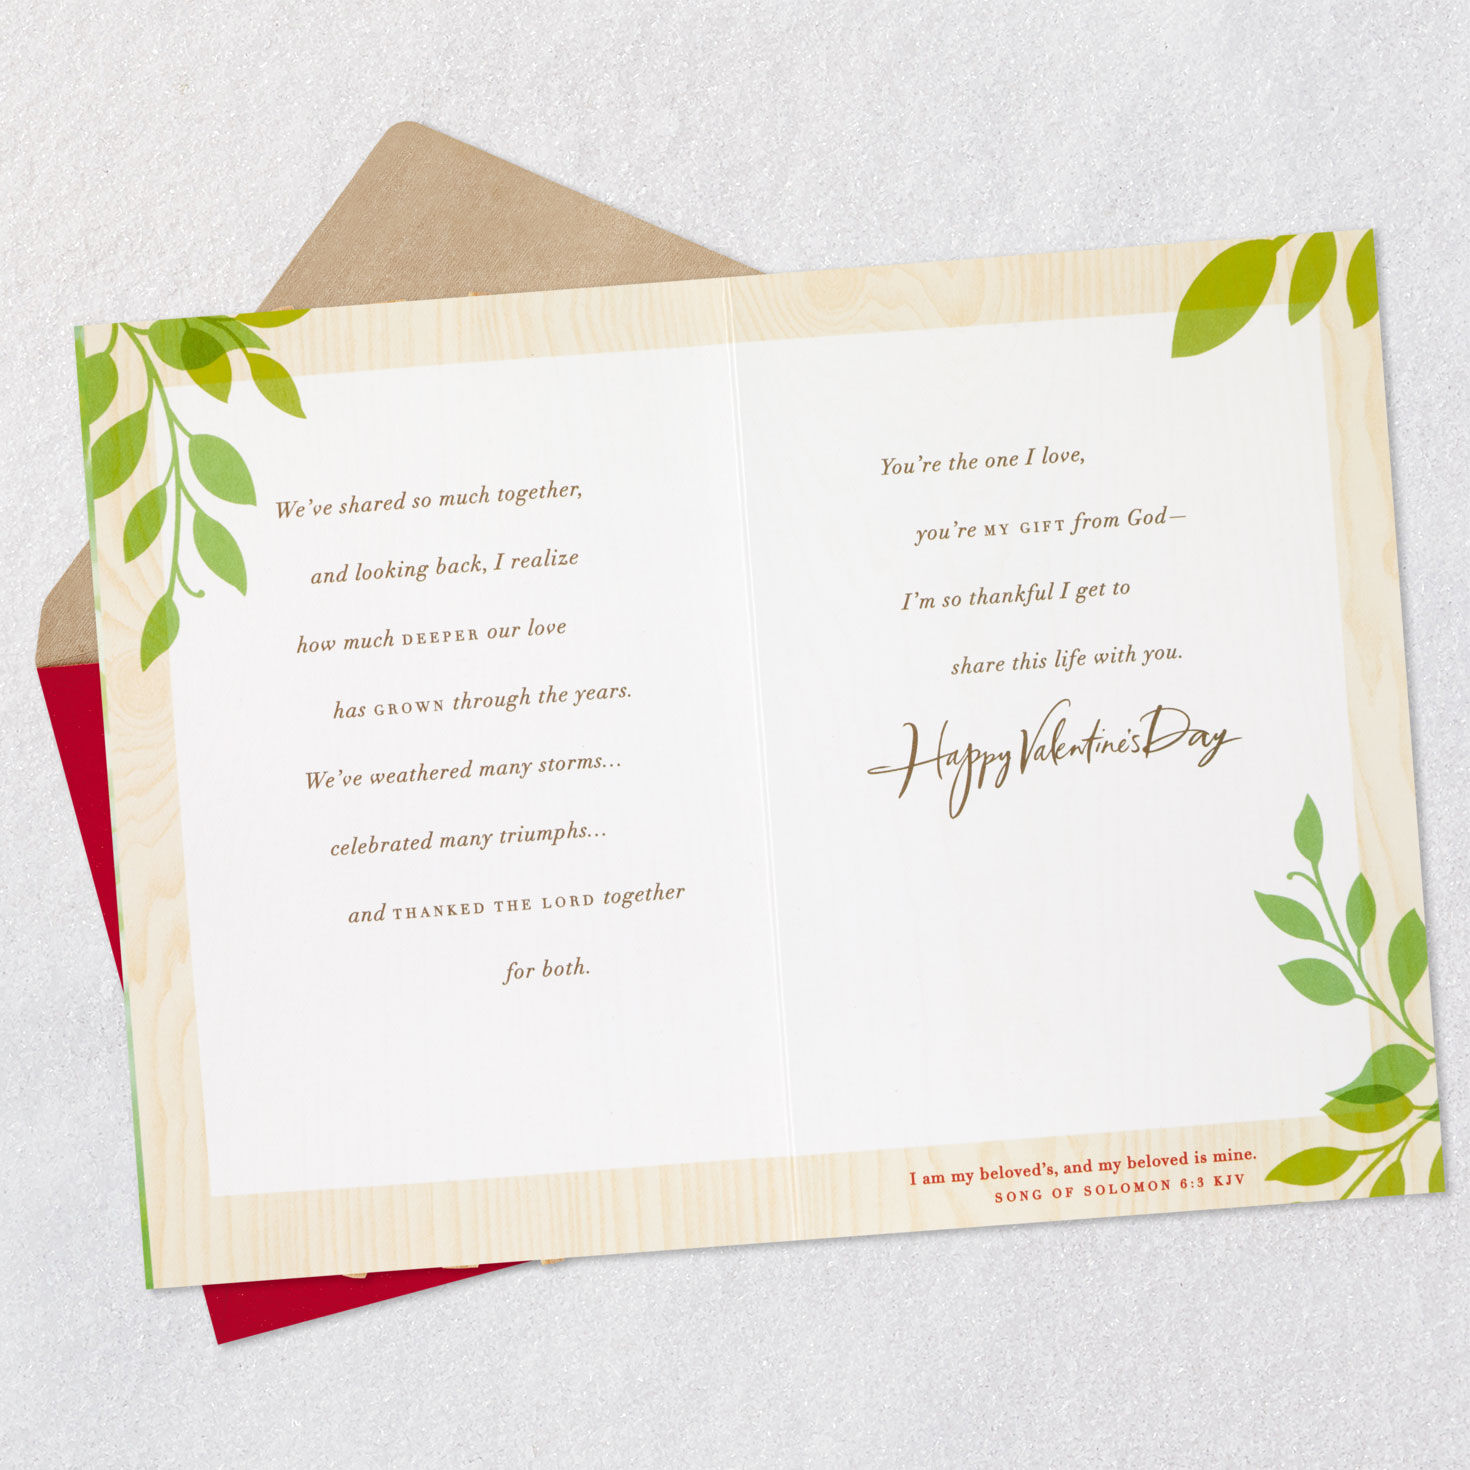 We've shared so much together,
and looking back, I realize
how much DEEPER our love
has GROWN through the years.
We've weathered many storms...
celebrated many triumphs...
and THANKED THE LORD together
for both.
You're the one I love,
you're MY GIFT from God—
I'm so thankful I get to
share this life with you.
Happy Valentine's Day
I am my beloved's, and my beloved is mine.
SONG OF SOLOMON 6:3 KJV